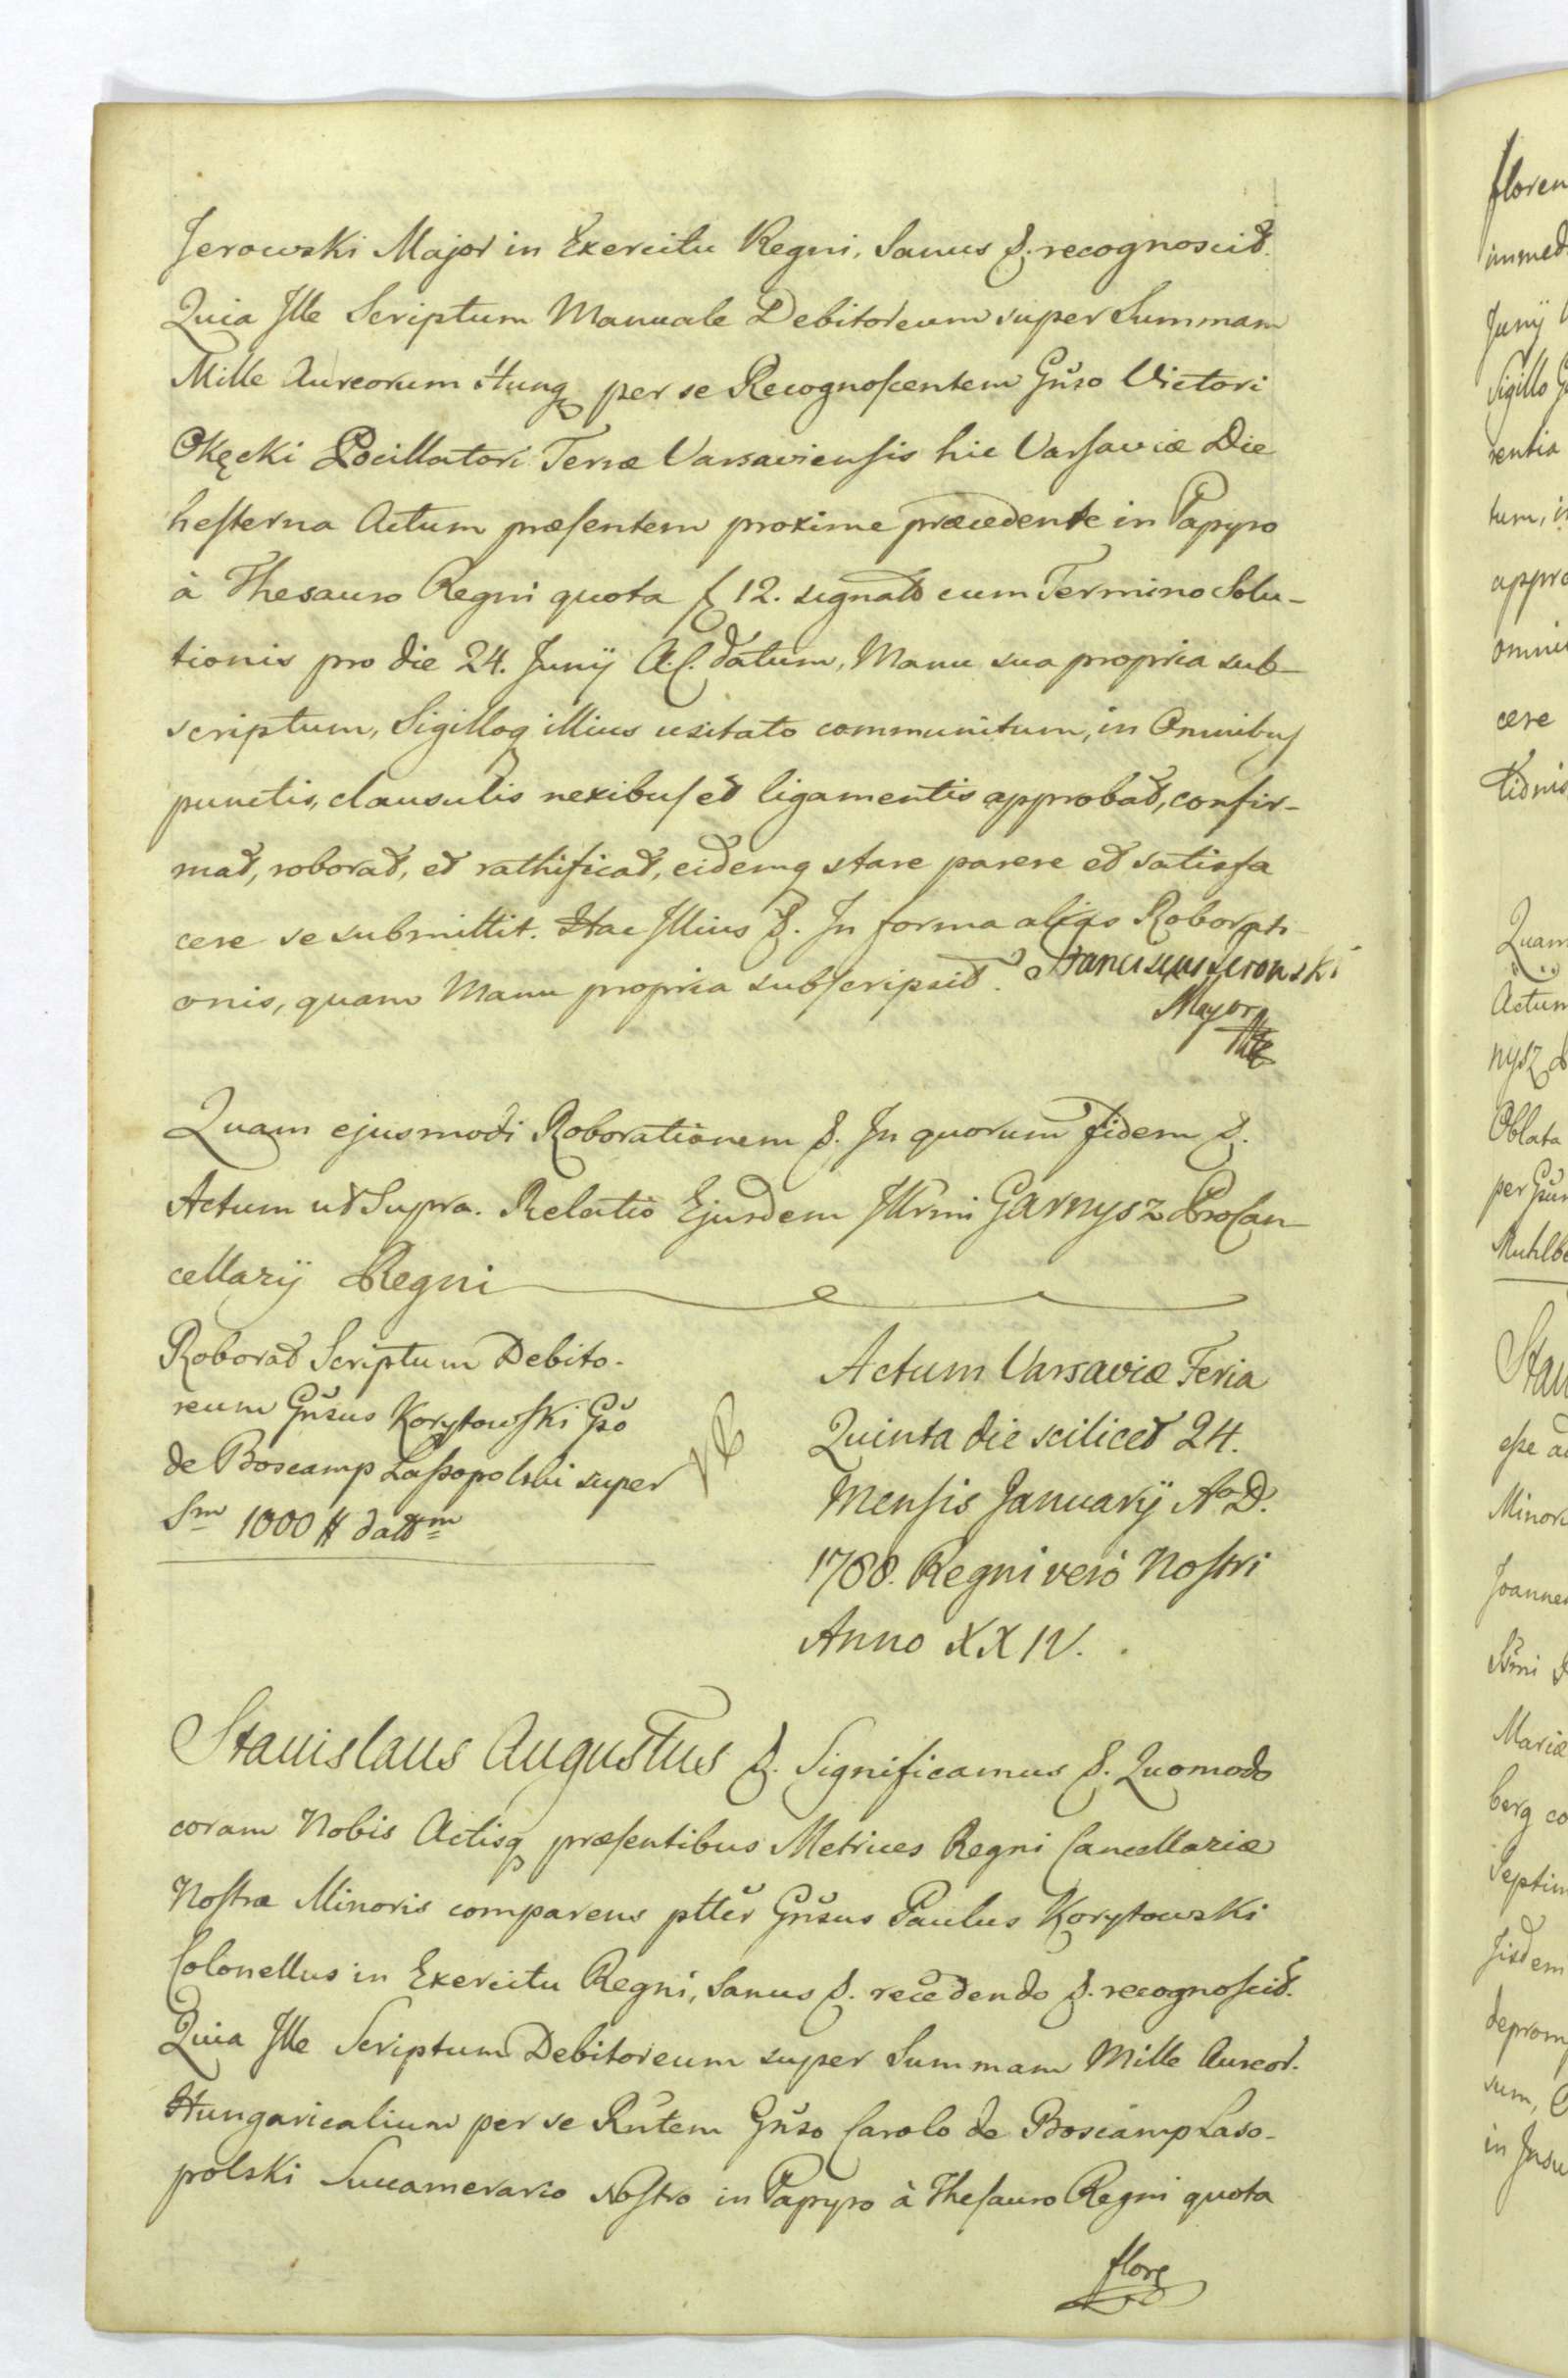 Jerowski Major in Exercitu Regni, Sanus &. recognoscit.
Quia Ille Scriptum Manuale Debitoreum super Summam
Mille Aureorum Hung, per se Recognoscentem Gñso Victori
Okęcki Pocillatori Terræ Varsaviensis hic Varsaviæ Die
hesterna Actum præsentem proxime præcedente in Papyro
à Thesauro Regni quota f 12. signato cum Termino Solu-
tionis pro die 24. Junÿ A.C. datum, Manu sua propria sub-
scriptum, Sigilloq illius usitato communitum, in Omnibus
punctis, clausulis nexibus et ligamentis approbat, confir-
mat, roborat, et rathificat, eidemq stare parere et satisfa
cere se submittit. Hac Illius &. In forma aliqs Roborati
onis, quam Manu propria subscripsit. Franciscus Jerowski
Mayor
Quam ejusmodi Roborationem &. In quorum fidem &.
Actum ut Supra. Relatio Ejusdem Illrmi Garnysz ProCan-
cellarÿ Regni
Roborat Scriptum Debito-
reum Gñsus Korytowski Gso
de Boscamp Lassopolski super
Sm 1000 # dattm
Actum Varsaviæ Feria
Quinta die scilicet 24.
Mensis Januarÿ Ao D.
1788. Regni verò Nostri
Anno XXIV.
Stanislaus Augustus &. Significamus &. Quomodo
coram Nobis Actisq præsentibus Metrices Regni Cancellariæ
Nostræ Minoris comparens ptter Gñsus Paulus Korytowski
Colonellus in Exercitu Regni, Sanus &. recedendo &. recognoscit.
Quia Ille Scriptum Debitoreum super Summam Mille Aureor.
Hungaricalium per se Rñtem Gñso Carolo de Boscamp Laso-
polski Succamerario Nostro in Papyro à Thesauro Regni quota
flore
floren
immed
Junÿ
Sigillo
rentia
tum, i
appro
omni
cere
Quam
Actum
nysz
Oblata
per Gñs
Muhlbe
Stan
esse a
Minori
Joannes
Mariæ
berg co
Septim
Jisdem
deprom
sum,